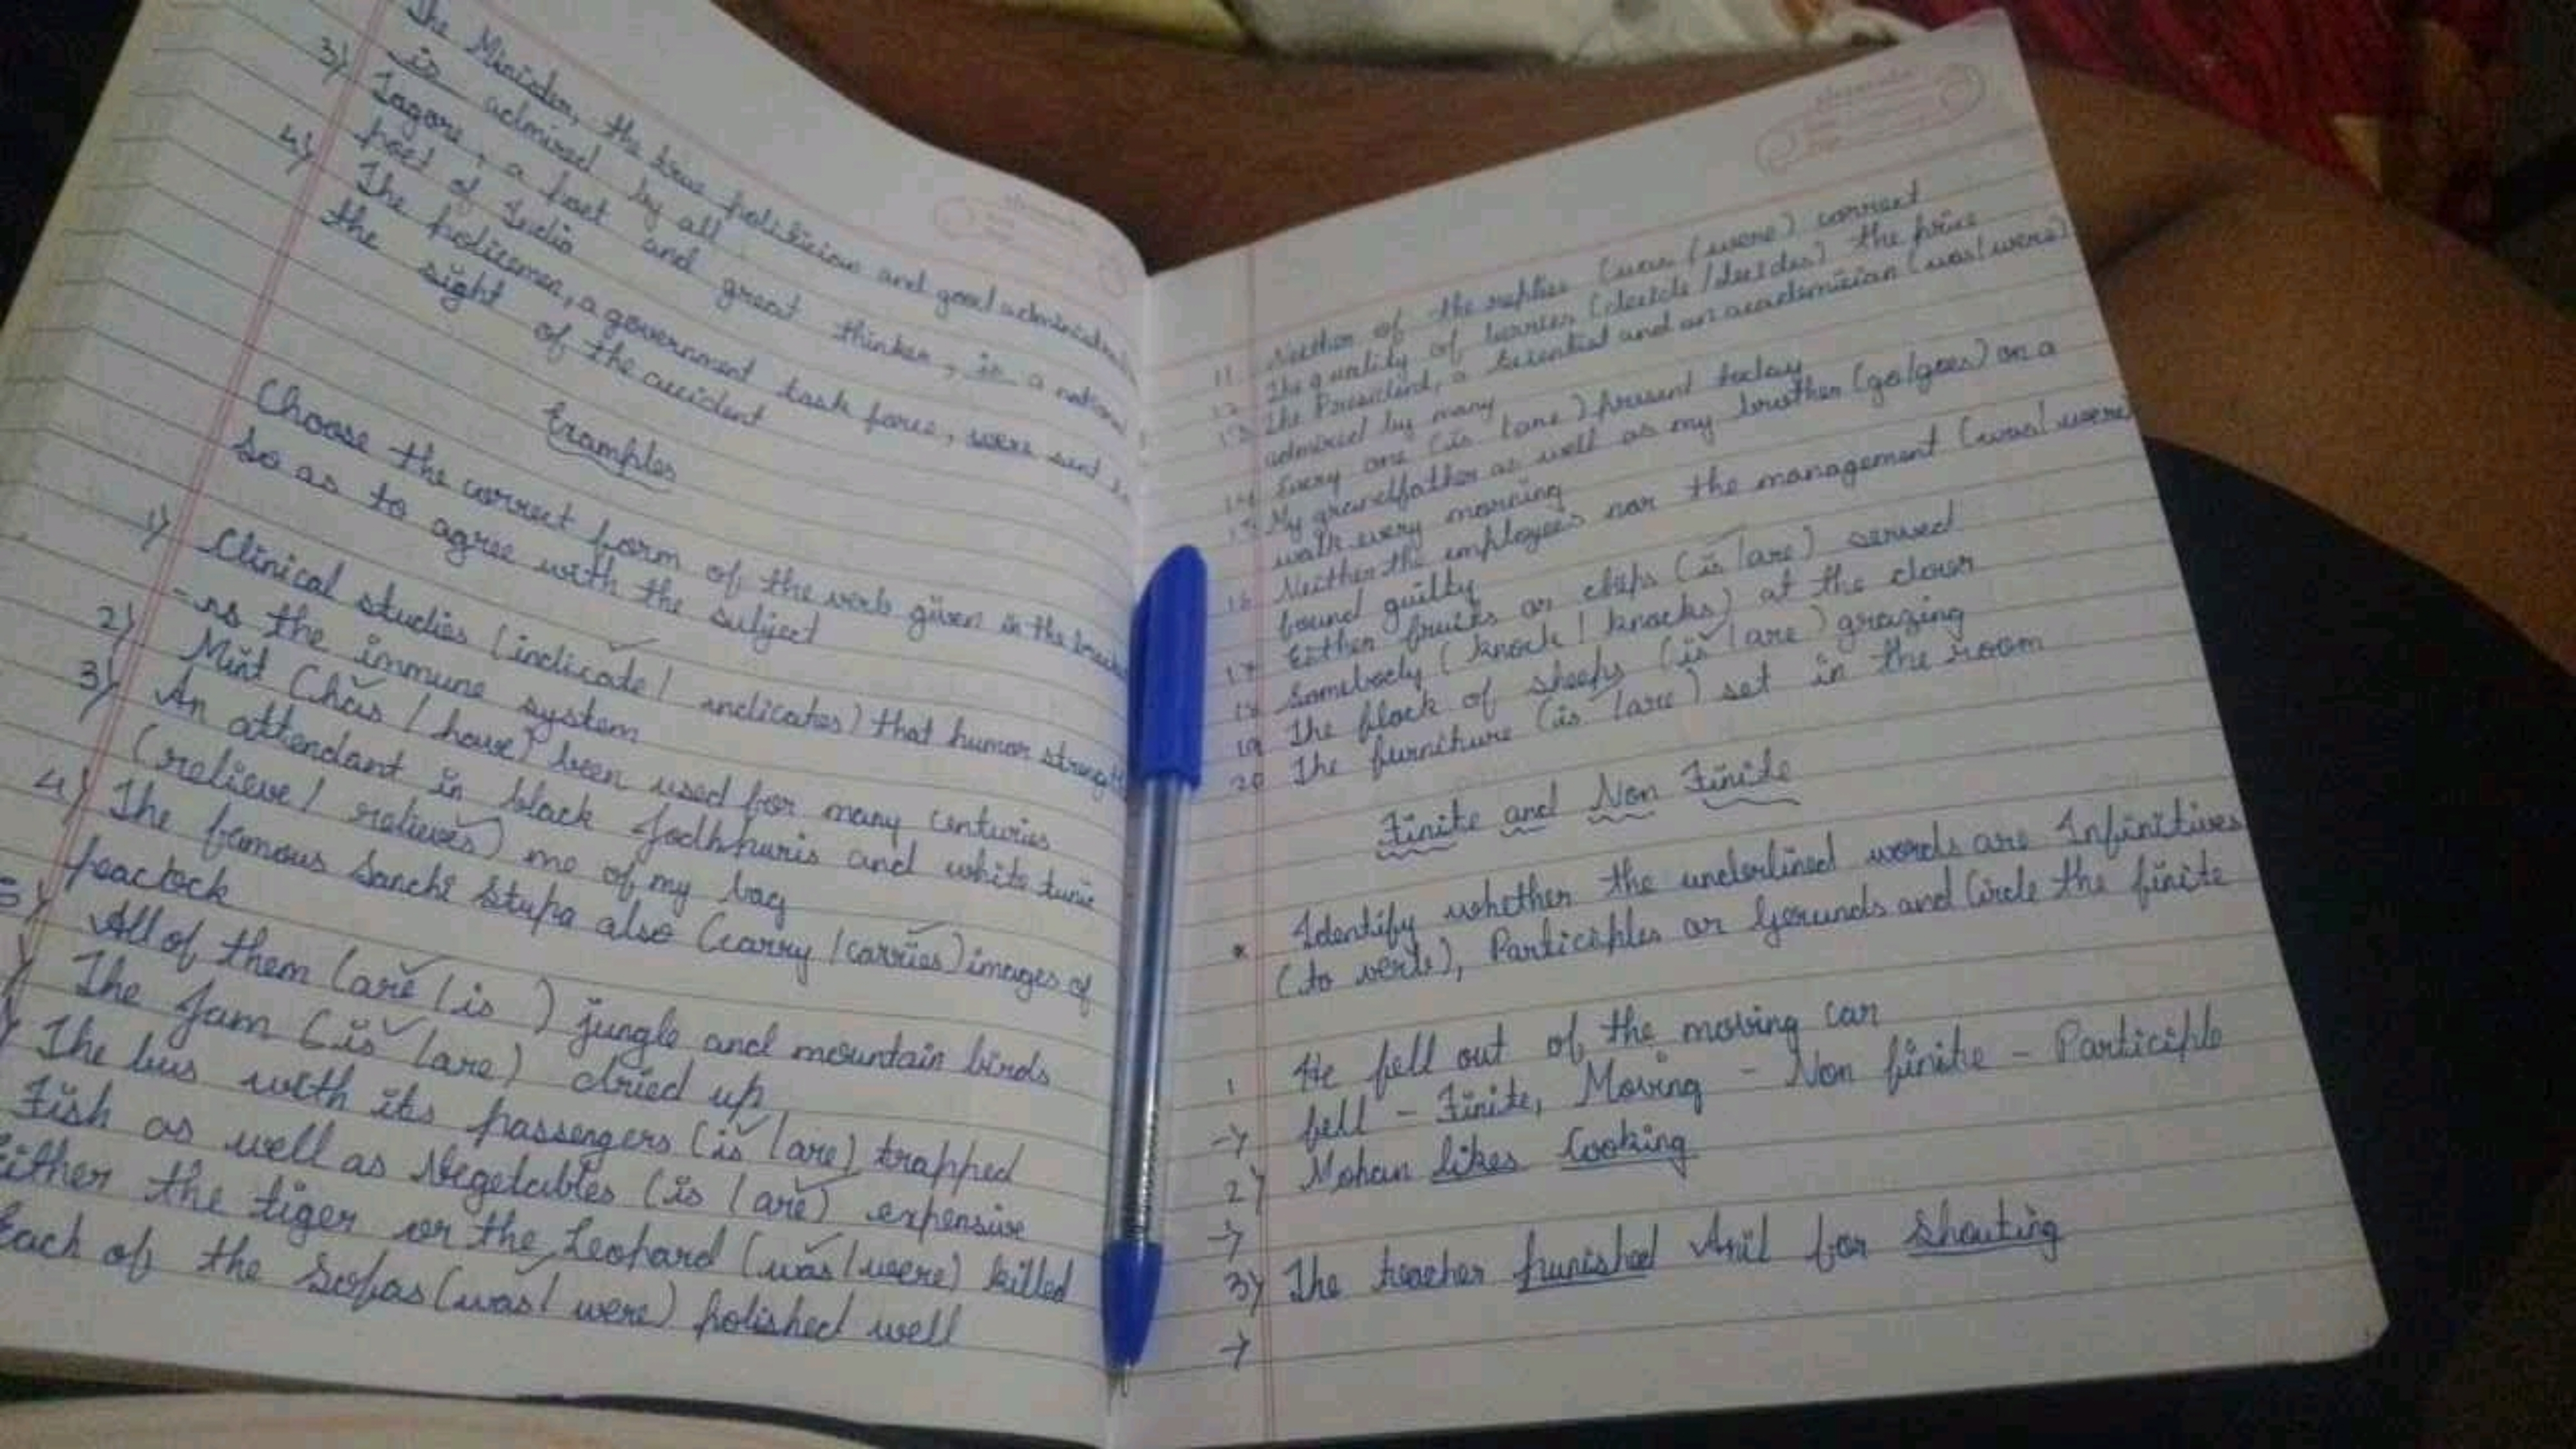 The Minister, the brave politician and good administra
is admired by all
3) Tagore, a poet and great thinker, is a national
poet of India
4) The policemen, a government task force, were sent to
the sight of the accident
Examples
Choose the correct form of the verb given in the
so as to agree with the subject
1) Clinical studies (indicate / indicates) that humor strength
-ns the immune system
2) Mint (has / have) been used for many centuries
3) An attendant in black Jodhpuris and white tunic
(relieve / relieves) me of my bag
4) The famous Sanchi Stupa also (carry / carries) images of
peactock
5) All of them (are / is ) jungle and mountain birds
) The Jam (is / are) dried up
) The bus with its passengers (is / are) trapped
Fish as well as Vegetables (is / are) expensive
Either the tiger or the Leopard (was / were) killed
Each of the Sofas (was / were) polished well
11 Neither of the replies (was / were) correct
12 The quality of berries (decide / decides) the price
13 The President, a Scientist and an academician (was / were)
admired by many
14 Every one (is / are ) present today
15 My grandfather as well as my brother (go/goes) on a
walk every morning
16 Neither the employees nor the management (was / were
found guilty
17 Either fruits or chips (is / are) served
18 Somebody ( knock / knocks) at the door
19 The flock of sheeps (is / are ) grazing
20 The furniture (is / are ) set in the room
Finite and Non Finite
* Identify whether the underlined words are Infinitives
(to verb), Participles or Gerunds and Circle the finite
1 He fell out of the moving car
-> fell - Finite, Moving - Non finite - Participle
2) Mohan likes Cooking
->
3) The teacher punished Anil for Shouting
->